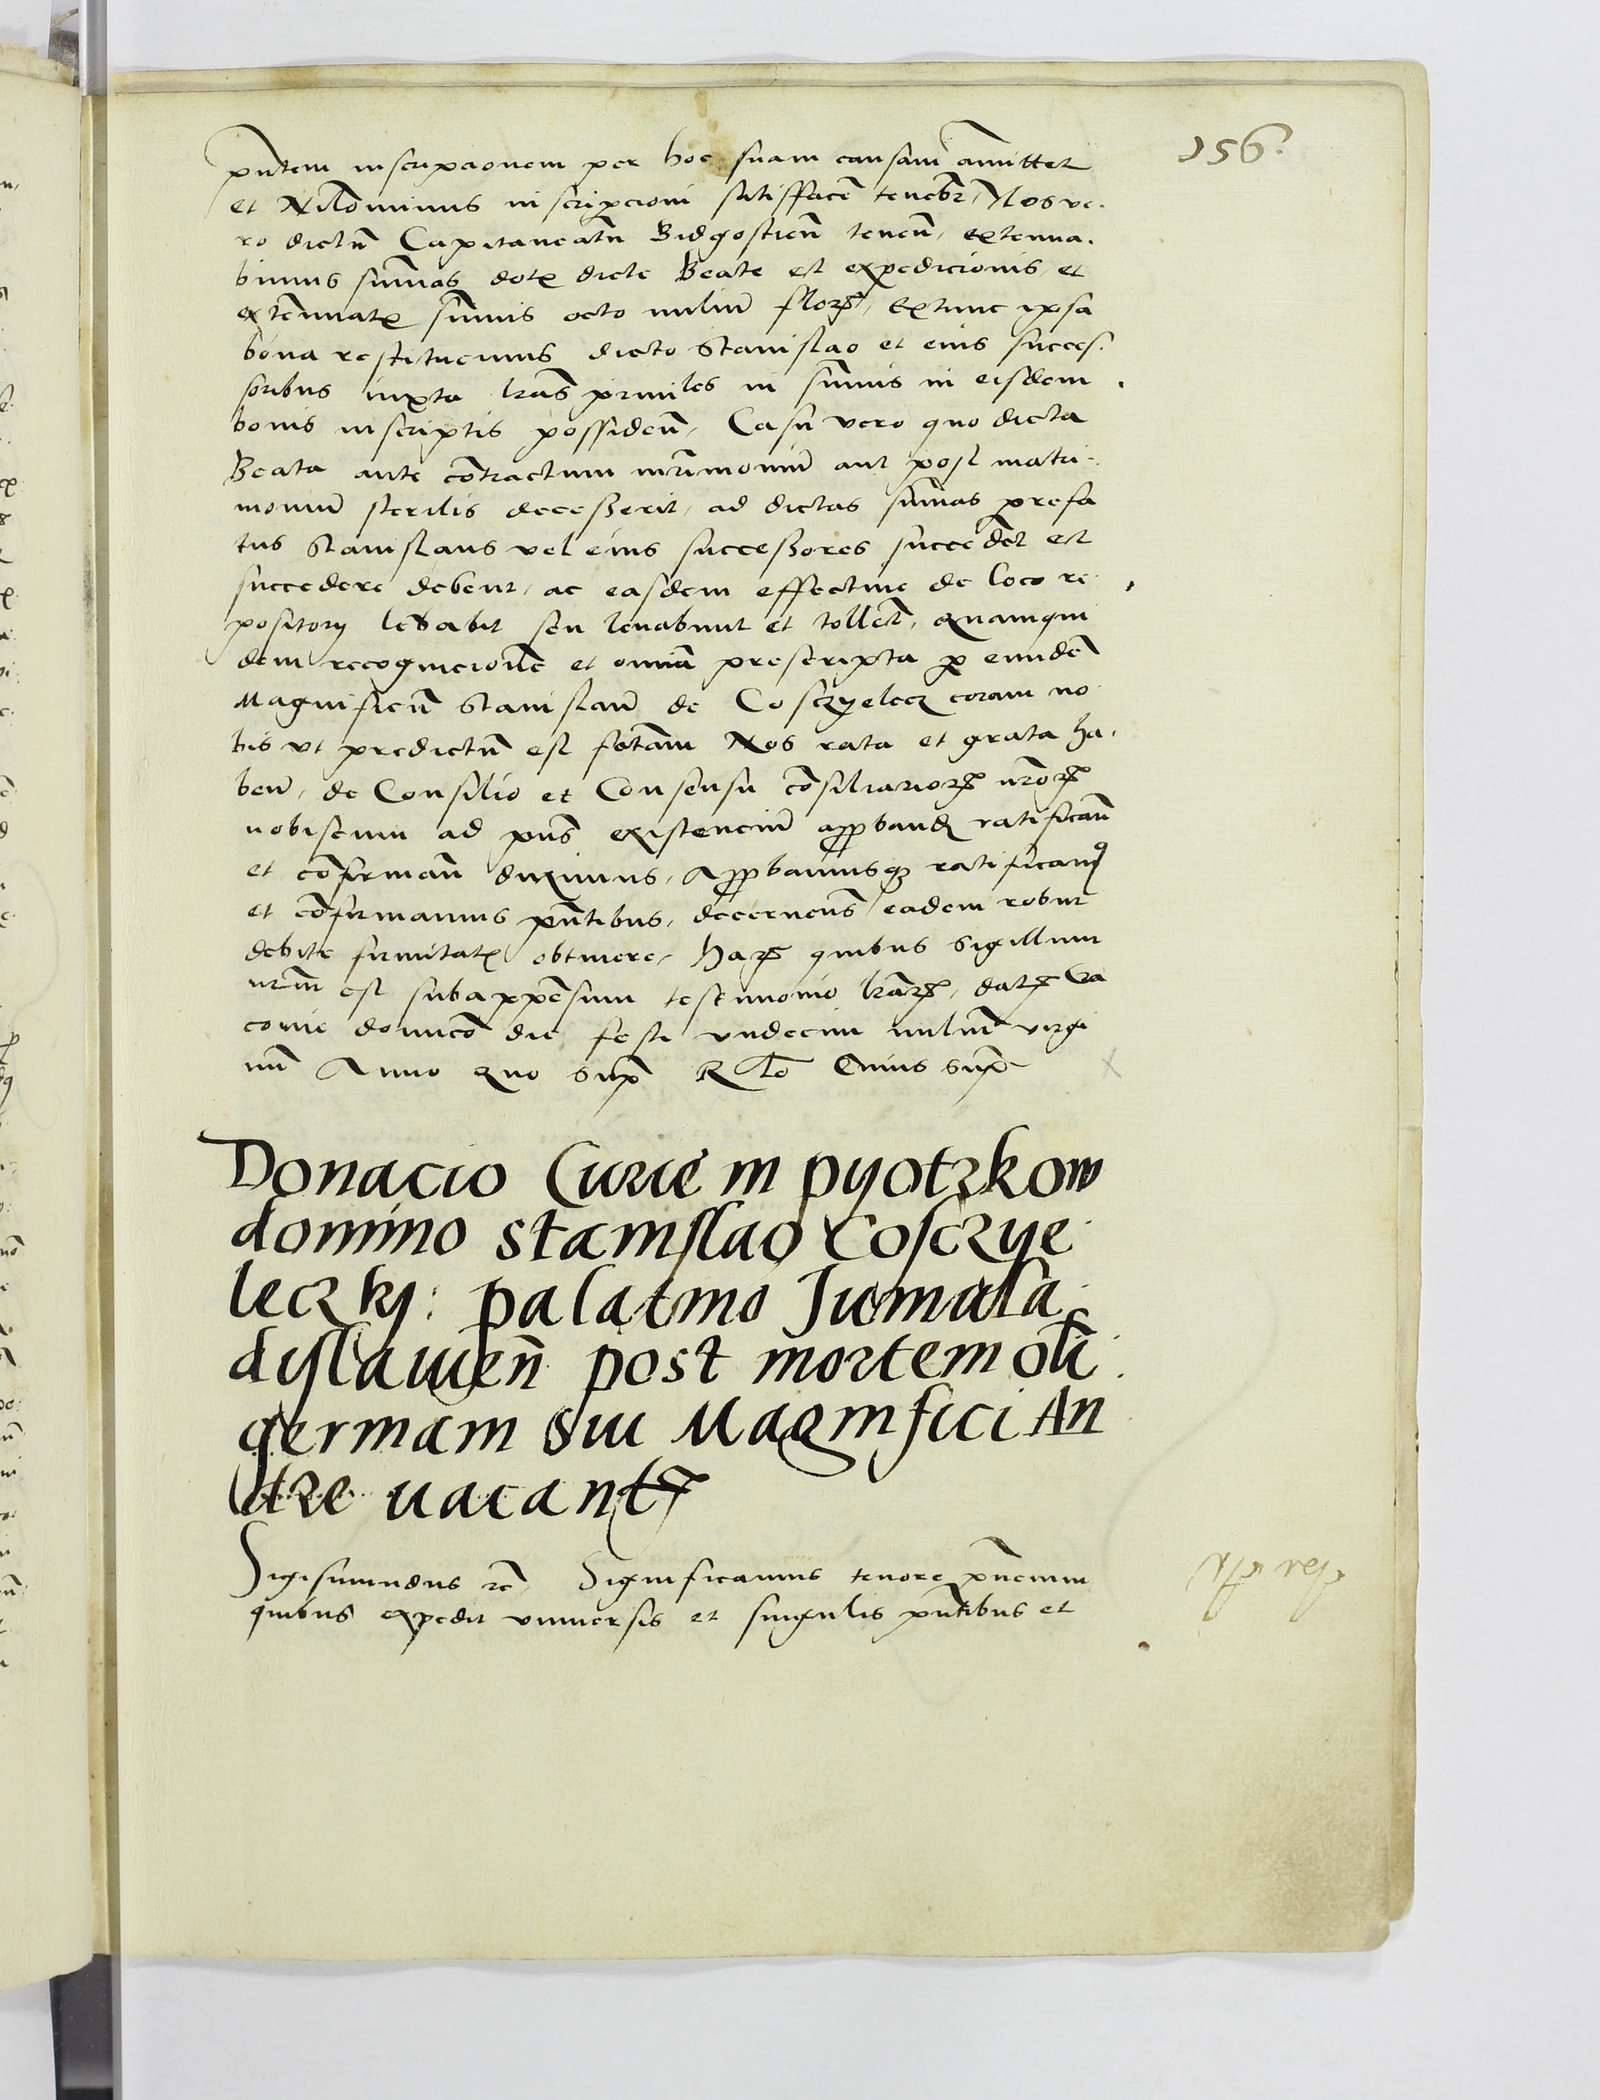 156.
pntem inscripcionem per hoc suam causam amittet
et Nilominus inscripcioni satisfacere tenebr, Nos ve.
ro dictum Capitaneatu Bidgostien tenen, extenua.
bimus sumas dotis dicte Beate et expedicionis, et
extenuatis sumis octo miliu flor, extunc ipsa
bona restituemus dicto Stanislao et eius succes.
soribus iuxta lras in sumis in eisdem
bonis inscriptis possiden, Casu vero quo dicta
Beata ante contractum mrimoniu aut post matri-
moniu sterilis decesserit, ad dictas sumas prefa
tus Stanislaus vel eius successores succedet et
succedere debent, ac easdem effectiue de loco re
pository leuabit seu leuabunt et tollent, quamqui
dem recognicione et omnia prescripta per eunde
Magnificu Stanislau de Cosczyelecz coram no
bis vt predictu est Nos rata et grata ha.
ben, de Consilio et Consensu consiliarior nror
nobiscum ad pns existenciu approband ratifican
et confirman duximus, Approbamusq ratificam
et confirmamus pntibus, decernens eadem robur
debite firmitatis obtinere, Har quibus sigillum
nrm est subappensum testimonio lrar, dat Cra
couie dominico die festi vndecim miliu virgi
nu Anno quo supra Rlo Cuius supra
Donacio Curie in pyotrkow
domino stanislao Cosczye
leczky: palatino Juniwla
dyslauien post mortem oli
germani sui Magnifici An
dree uacant
Sigismundus rc, Significamus tenore pncium
quibus expedit vniuersis et singulis pntibus et